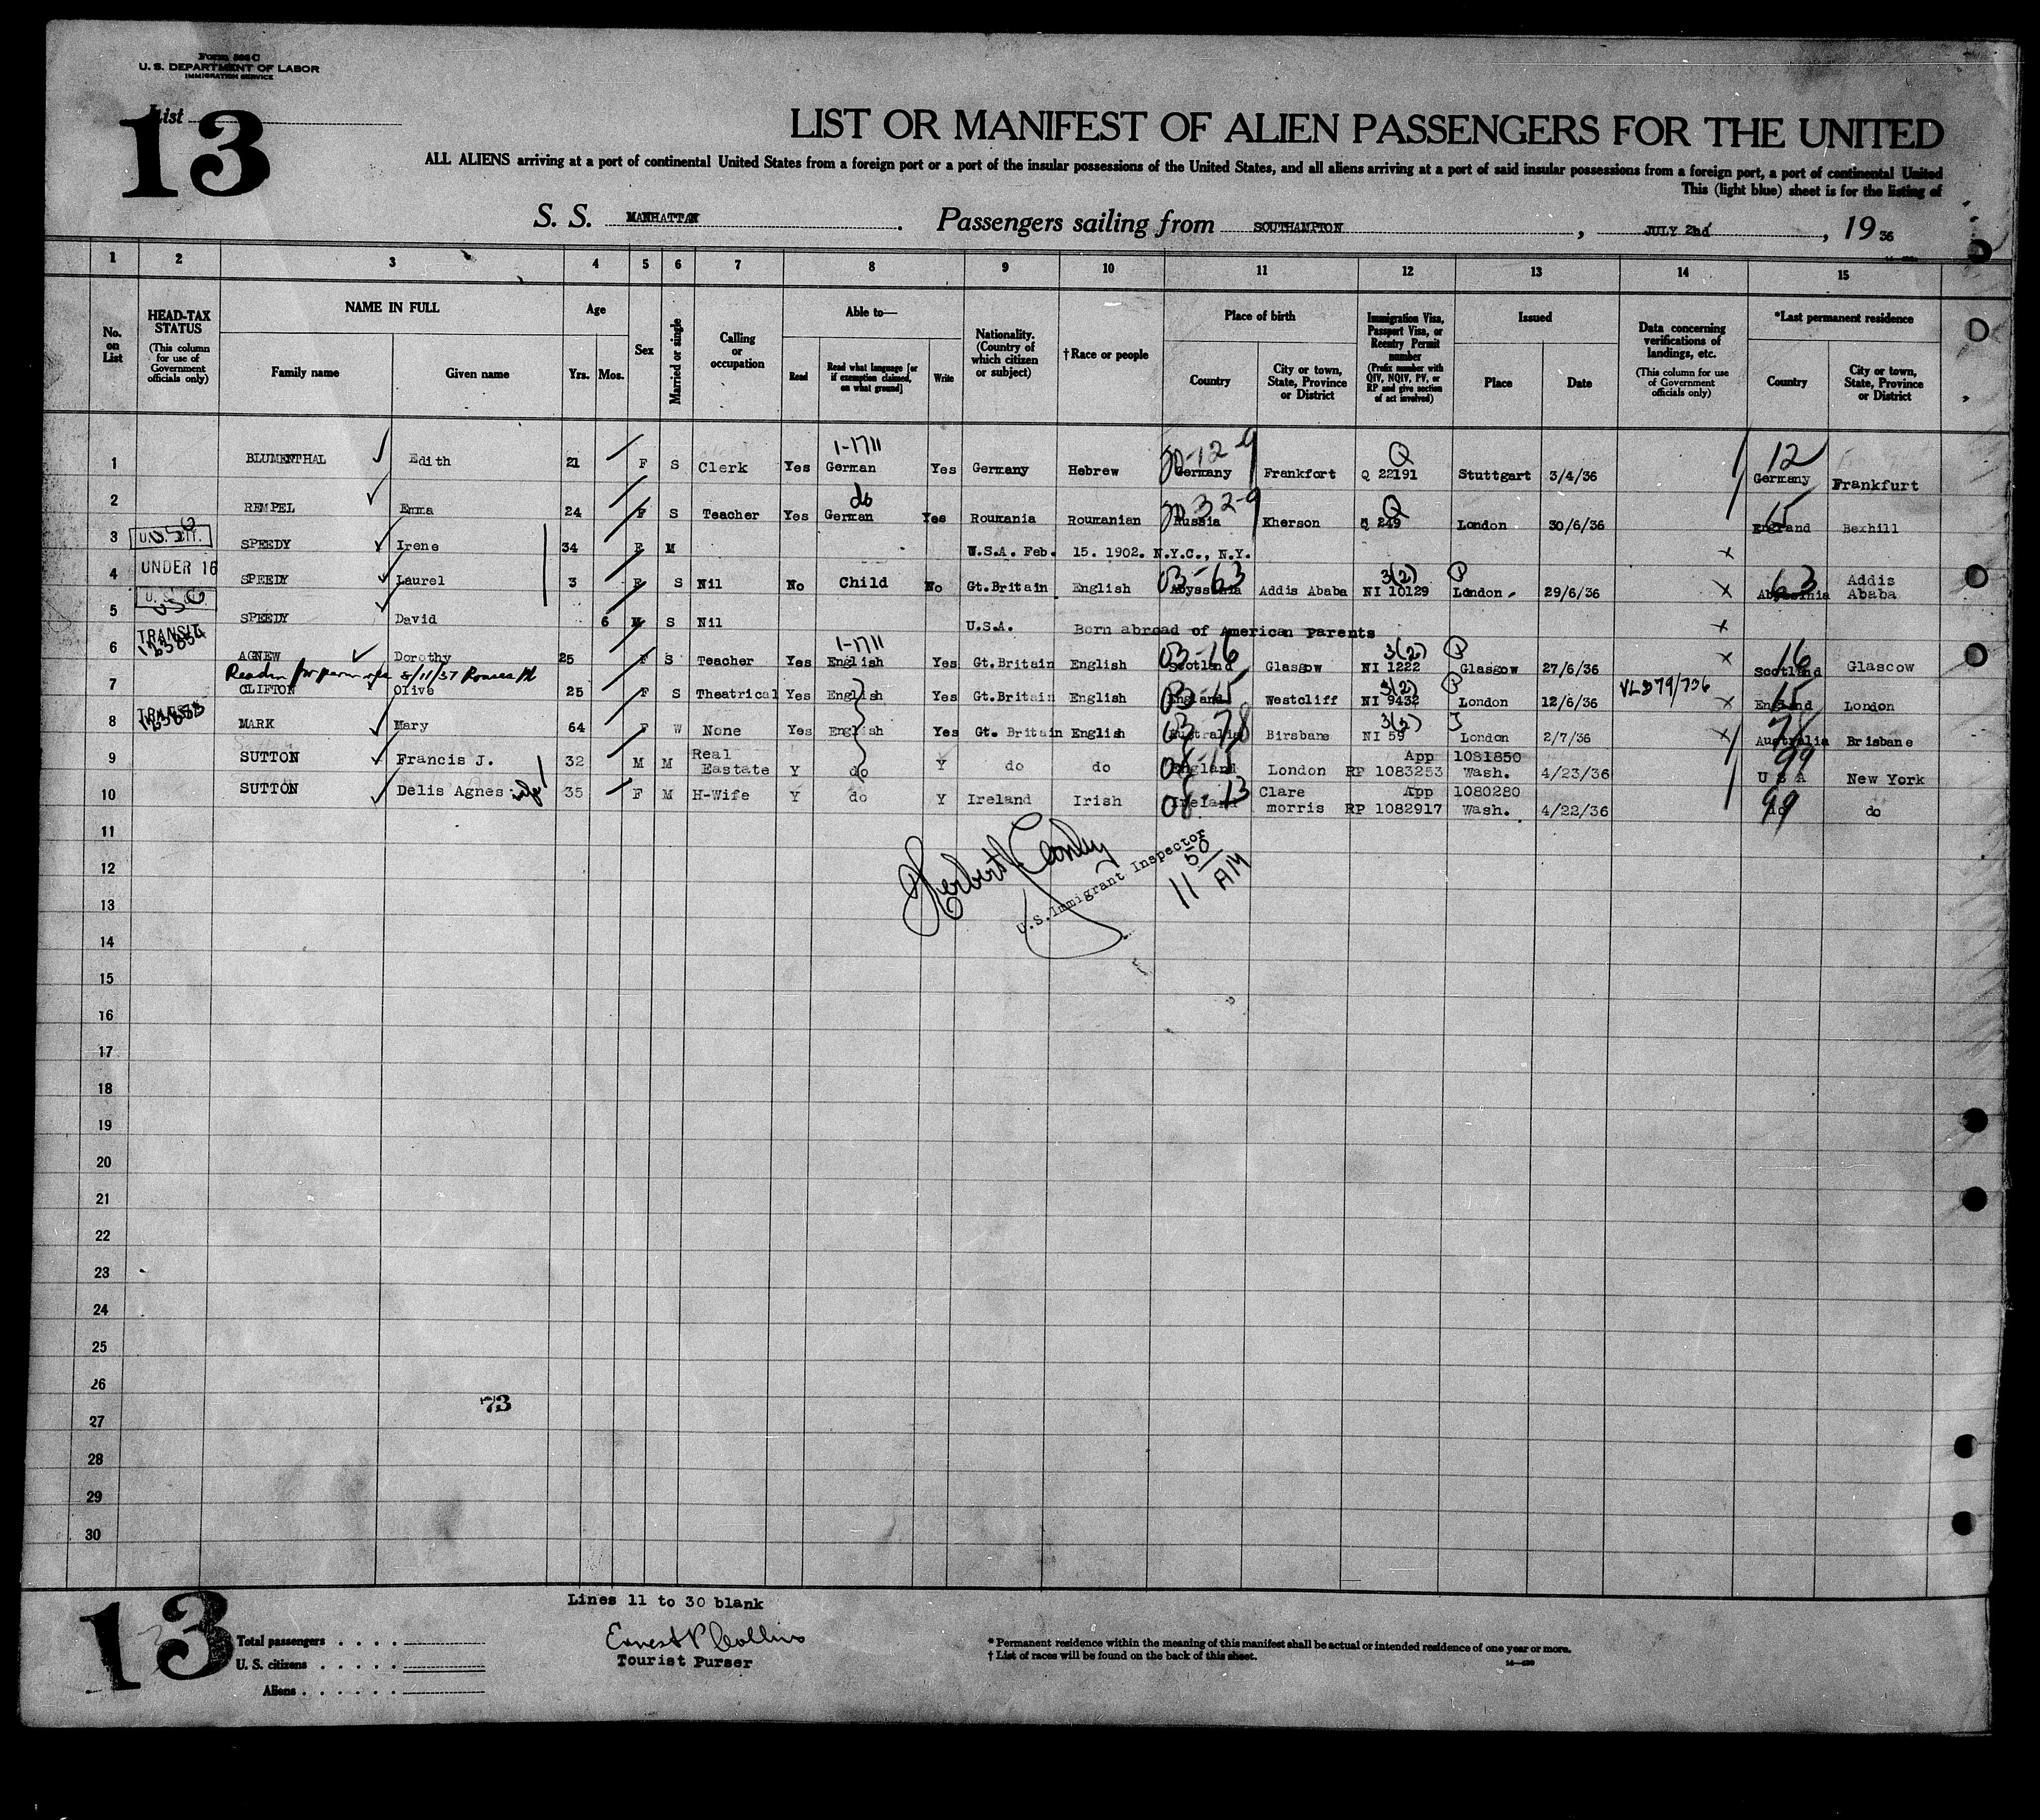 Form 500 C
U. S. DEPARTMENT OF LABOR
IMMIGRATION SERVICE
List
13
LIST OR MANIFEST OF ALIEN PASSENGERS FOR THE UNITED
ALL ALIENS arriving at a port of continental United States from a foreign port or a port of the insular possessions of the United States, and all aliens arriving at a port of said insular possessions from a foreign port, a port of continental United
This (light blue) sheet is for the listing of
S. S. MANHATTAN. Passengers sailing from SOUTHAMPTON, JULY 2nd, 19 36
1 2 3 4 5 6 7 8 9 10 11 12 13 14 15
No. on List
HEAD-TAX STATUS (This column for use of Government officials only)
NAME IN FULL
Family name Given name
Age
Yrs. Mos.
Sex
Married or single
Calling or occupation
Able to—
Read
Read what language [or if exemption claimed, on what ground]
Write
Nationality. (Country of which citizen or subject)
†Race or people
Place of birth
Country
City or town, State, Province or District
Immigration Visa, Passport Visa, or Reentry Permit number (Prefix number with QIV, NQIV, PV, or RP and give section of act involved)
Issued
Place Date
Data concerning verifications of landings, etc. (This column for use of Government officials only)
*Last permanent residence
Country
City or town, State, Province or District
1-1711 30-12-9 Q 12
1 BLUMENTHAL Edith 21 F S Clerk Yes German Yes Germany Hebrew Germany Frankfort Q 22191 Stuttgart 3/4/36 Germany Frankfurt
do 32-9 Q 15
2 REMPEL Emma 24 F S Teacher Yes German Yes Roumania Roumanian Russia Kherson Q 249 London 30/6/36 England Bexhill
3 SPEEDY Irene 34 F M U.S.A. Feb. 15. 1902. N.Y.C., N.Y. x
UNDER 16 03-63 3(2) P 63
4 SPEEDY Laurel 3 F S Nil No Child No Gt.Britain English Abyssinia Addis Ababa NI 10129 London 29/6/36 x Abyssinia Addis Ababa
5 SPEEDY David 6 M S Nil U.S.A. Born abroad of American parents x
TRANSIT 1-1711 03-16 3(2) P 16
6 AGNEW Dorothy 25 F S Teacher Yes English Yes Gt.Britain English Scotland Glasgow NI 1222 Glasgow 27/6/36 x Scotland Glascow
8/11/37
03-15 3(2) P 15
7 CLIFTON Olive 25 F S Theatrical Yes English Yes Gt.Britain English England Westcliff NI 9432 London 12/6/36 x England London
TRANSIT 03 78 3(3) 78
8 MARK Mary 64 F W None Yes English Yes Gt. Britain English Australia Birsbane NI 59 London 2/7/36 x Australia Brisbane
08-15 99
9 SUTTON Francis J. 32 M M Real Eastate Y do Y do do England London App 1081850 RP 1083253 Wash. 4/23/36 U S A New York
08-13 99
10 SUTTON Delis Agnes wife 35 F M H-Wife Y do Y Ireland Irish Ireland Clare morris App 1080280 RP 1082917 Wash. 4/22/36 do do
11
12
13
14
15
16
17
18
19
20
21
22
23
24
25
26
27
28
29
30
U.S. Immigrant Inspector
11 50 AM
73
Lines 11 to 30 blank
Ernest P Collins
Tourist Purser
13
Total passengers
U. S. citizens
Aliens
* Permanent residence within the meaning of this manifest shall be actual or intended residence of one year or more.
† List of races will be found on the back of this sheet.